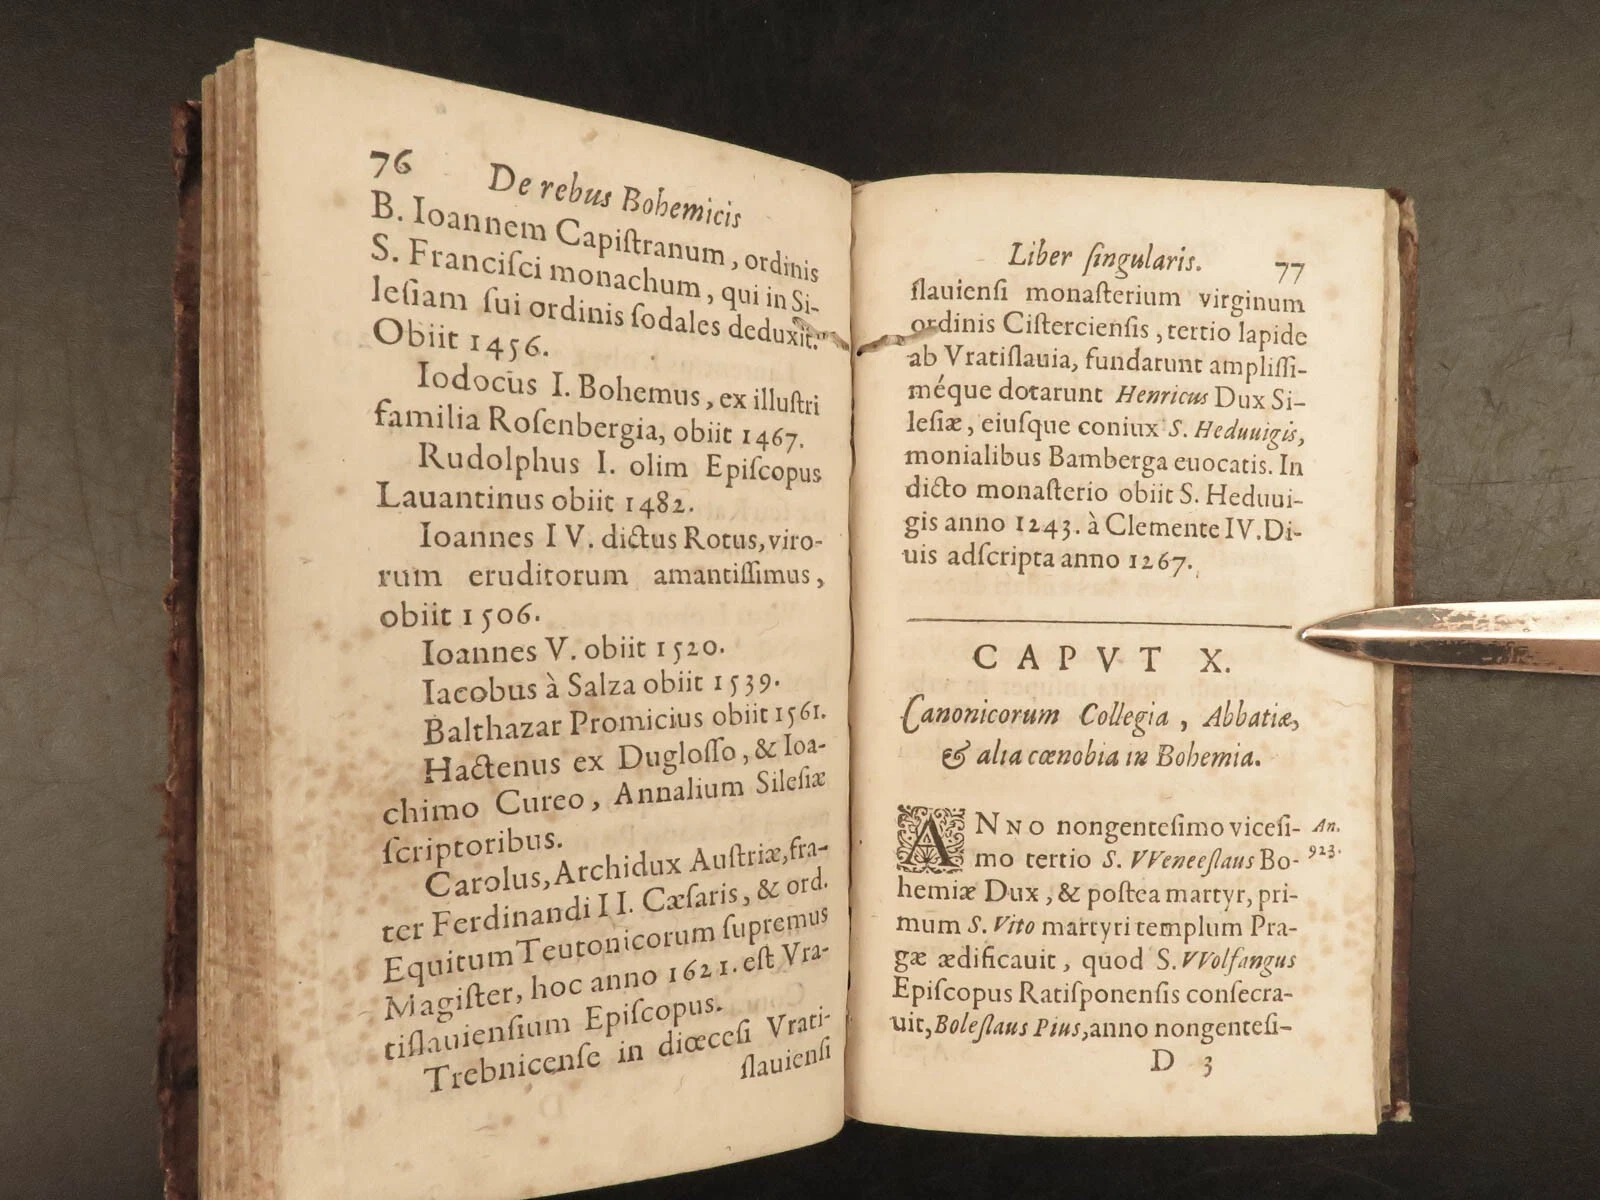 76
De rebus Bohemicis
B. Ioannem Capiſtranum, ordinis
S. Franciſci monachum, qui in Si-
leſiam ſui ordinis ſodales deduxit.
Obiit 1456.
Iodocus I. Bohemus, ex illuſtri
familia Roſenbergia, obiit 1467.
Rudolphus I. olim Epiſcopus
Lauantinus obiit 1482.
Ioannes IV. dictus Rotus, viro-
rum eruditorum amantiſſimus,
obiit 1506.
Ioannes V. obiit 1520.
Iacobus à Salza obiit 1539.
Balthazar Promicius obiit 1561.
Hactenus ex Dugloſſo, & Ioa-
chimo Cureo, Annalium Sileſiæ
ſcriptoribus.
Carolus, Archidux Auſtriæ, fra-
ter Ferdinandi II. Cæſaris, & ord.
Equitum Teutonicorum ſupremus
Magiſter, hoc anno 1621. eſt Vra-
tiſlauienſium Epiſcopus.
Trebnicenſe in diœceſi Vrati-
ſlauienſi
Liber ſingularis.
77
ſlauienſi monaſterium virginum
ordinis Ciſtercienſis, tertio lapide
ab Vratiſlauia, fundarunt ampliſſi-
méque dotarunt Henricus Dux Si-
leſiæ, eiuſque coniux S. Heduuigis,
monialibus Bamberga euocatis. In
dicto monaſterio obiit S. Heduui-
gis anno 1243. à Clemente IV. Di-
uis adſcripta anno 1267.
CAPVT X.
Canonicorum Collegia, Abbatiæ,
& alia cœnobia in Bohemia.
ANNO nongenteſimo viceſi-
mo tertio S. VVenceſlaus Bo-
hemiæ Dux, & poſtea martyr, pri-
mum S. Vito martyri templum Pra-
gæ ædificauit, quod S. VVolfangus
Epiſcopus Ratiſponenſis conſecra-
uit, Boleſlaus Pius, anno nongenteſi-
An.
923.
D 3